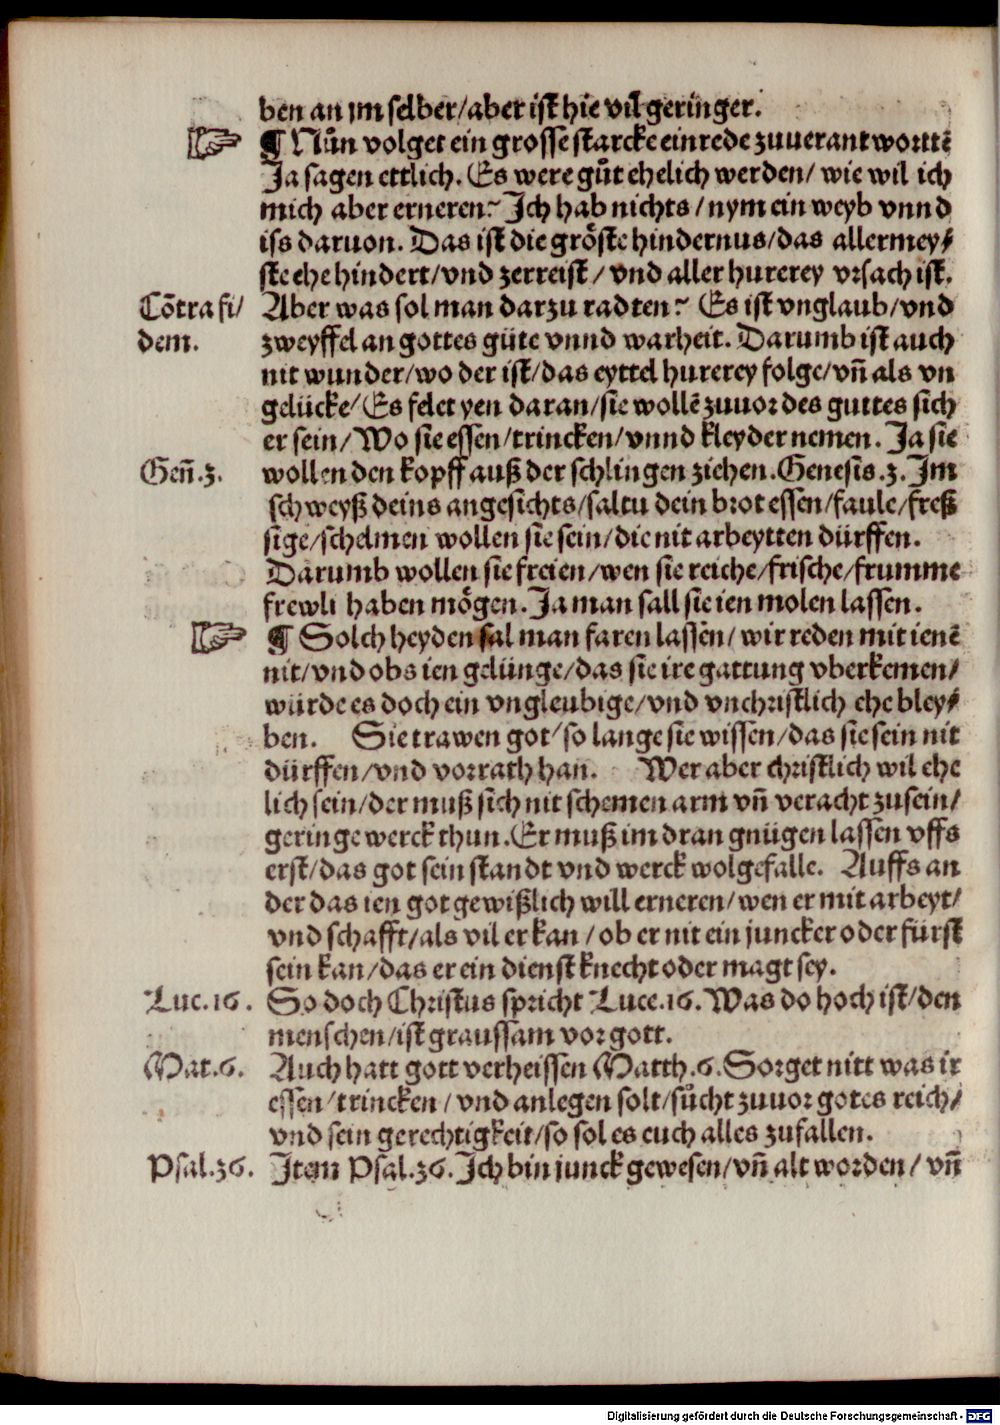 ben an jm selber/aber ist hie vil geringer.
☞ ¶ Nůn volget ein grosse starcke einrede zuuerantwortẽ
Ja sagen ettlich. Es were gůt ehelich werden/ wie wil ich
mich aber erneren? Ich hab nichts/ nym ein weyb vnnd
iss daruon. Das ist die gröste hindernus/das allermey⸗
ste ehe hindert/vnd zerreist/ vnd aller hurerey vrsach ist.
Cõtra fi/ Aber was sol man darzu radten? Es ist vnglaub/vnd
dem. zweyffel an gottes güte vnnd warheit. Darumb ist auch
nit wunder/wo der ist/das eyttel hurerey folge/vñ als vn
gelücke/ Es felet yen daran/sie wollẽ zuuor des guttes sich
er sein/ Wo sie essen/trincken/vnnd kleyder nemen. Ja sie
Geñ.3. wollen den kopff auß der schlingen ziehen. Genesis.3. Im
schweyß deins angesichts/saltu dein brot essen/faule/freß
sige/schelmen wollen sie sein/die nit arbeytten dürffen.
Darumb wollen sie freien/wen sie reiche/frische/frumme
frewli haben mögen. Ja man sall sie ien molen lassen.
☞ ¶ Solch heyden sal man faren lassen/ wir reden mit ienẽ
nit/vnd obs ien gelünge/das sie ire gattung vberkemen/
würde es doch ein vngleubige/vnd vnchristlich ehe bley⸗
ben. Sie trawen got/so lange sie wissen/das sie sein nit
dürffen/vnd vorrath han. Wer aber christlich wil ehe
lich sein/der muß sich nit schemen arm vñ veracht zusein/
geringe werck thun. Er muß im dran gnügen lassen vffs
erst/das got sein standt vnd werck wolgefalle. Auffs an
der das ien got gewißlich will erneren/wen er mit arbeyt/
vnd schafft/als vil er kan/ ob er nit ein juncker oder fürst
sein kan/das er ein dienstknecht oder magt sey.
Luc.16. So doch Christus spricht Luce.16. Was do hoch ist/den
menschen/ist graussam vor gott.
Mat.6. Auch hatt gott verheissen Matth.6. Sorget nitt was ir
essen/trincken/ vnd anlegen solt/sůcht zuuor gotes reich/
vnd sein gerechtigkeit/so sol es euch alles zufallen.
Psal.36. Item Psal.36. Ich bin junck gewesen/vñ alt worden/ vñ
Digitalisierung gefördert durch die Deutsche Forschungsgemeinschaft - DFG